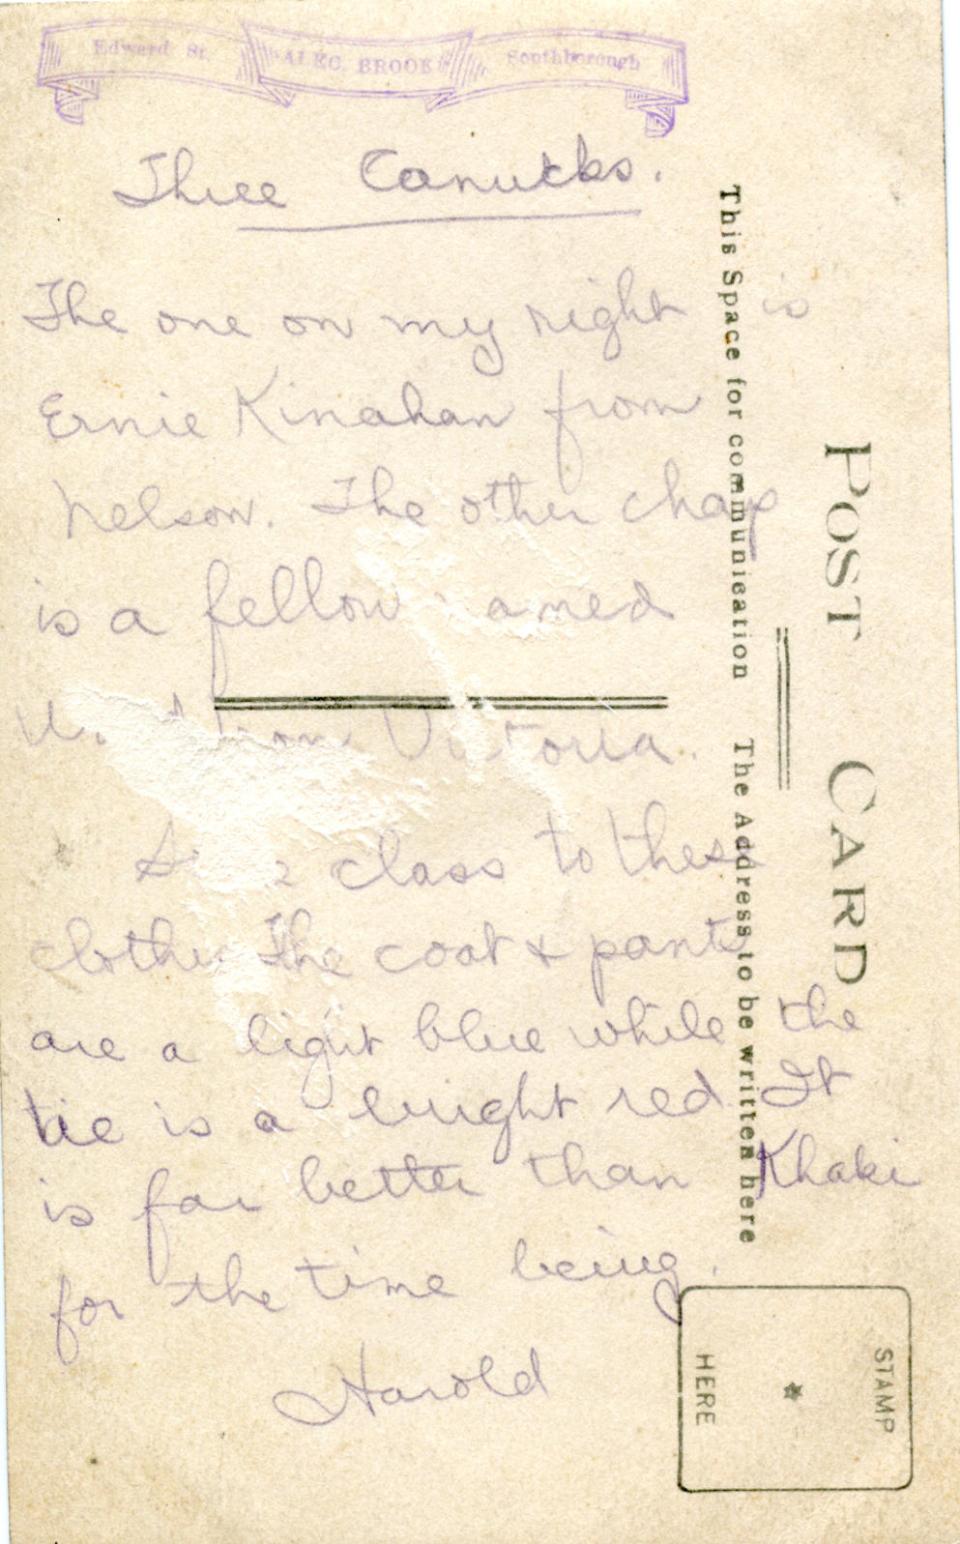 Edward St. ALEC. BROOK Southborough
Three Canucks.
The one on my right is
Ernie Kinahan from
Nelson. The other chap
is a fellow named
from Victoria.
class to these
clothes The coat & pants
are a light blue while the
tie is a bright red. It
is far better than Khaki
for the time being.
Harold
POST CARD
This Space for communication The Address to be written here
STAMP
HERE